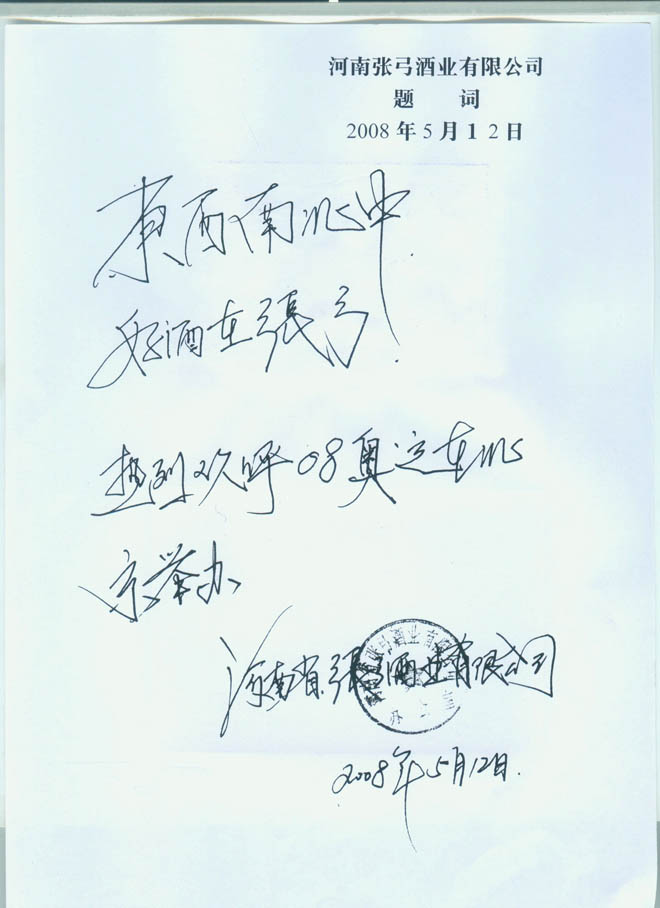 河南张弓酒业有限公司
题 词
2008年5月12日
東西南北中
好酒在張弓.
热烈欢呼08奥运在北
京举办
河南省張弓酒业有限公司
2008年5月12日.